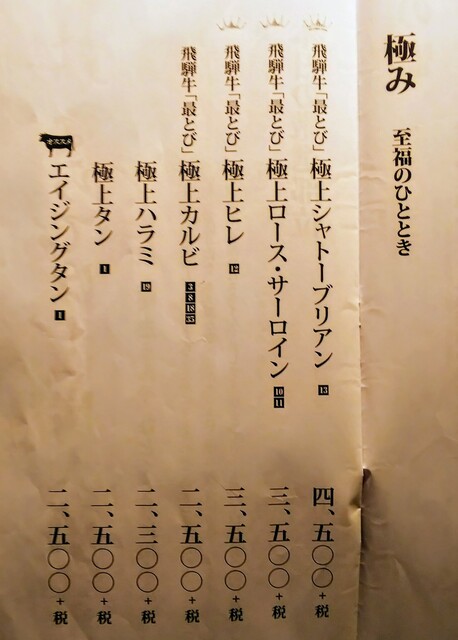 極み 至福のひととき
飛騨牛「最とび」極上シャトーブリアン 13 四、五〇〇+税
飛騨牛「最とび」極上ロース・サーロイン 10 11 三、五〇〇+税
飛騨牛「最とび」極上ヒレ 12 三、五〇〇+税
飛騨牛「最とび」極上カルビ 3 8 18 33 二、五〇〇+税
極上ハラミ 19 二、三〇〇+税
極上タン 1 二、五〇〇+税
エイジングタン 1 二、五〇〇+税